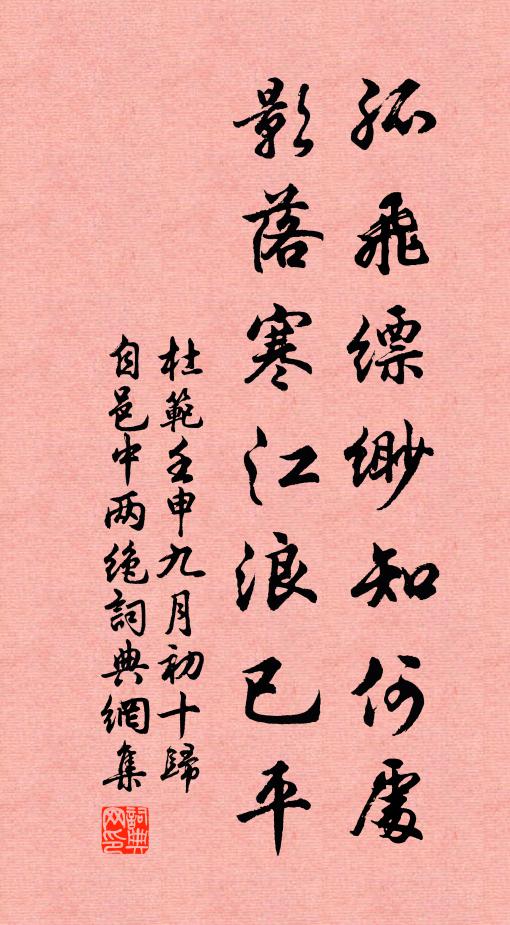 孤飛縹緲知何處
影落寒江浪已平
杜範壬申九月初十歸
自邑中两绝詞典網集
詞典网印